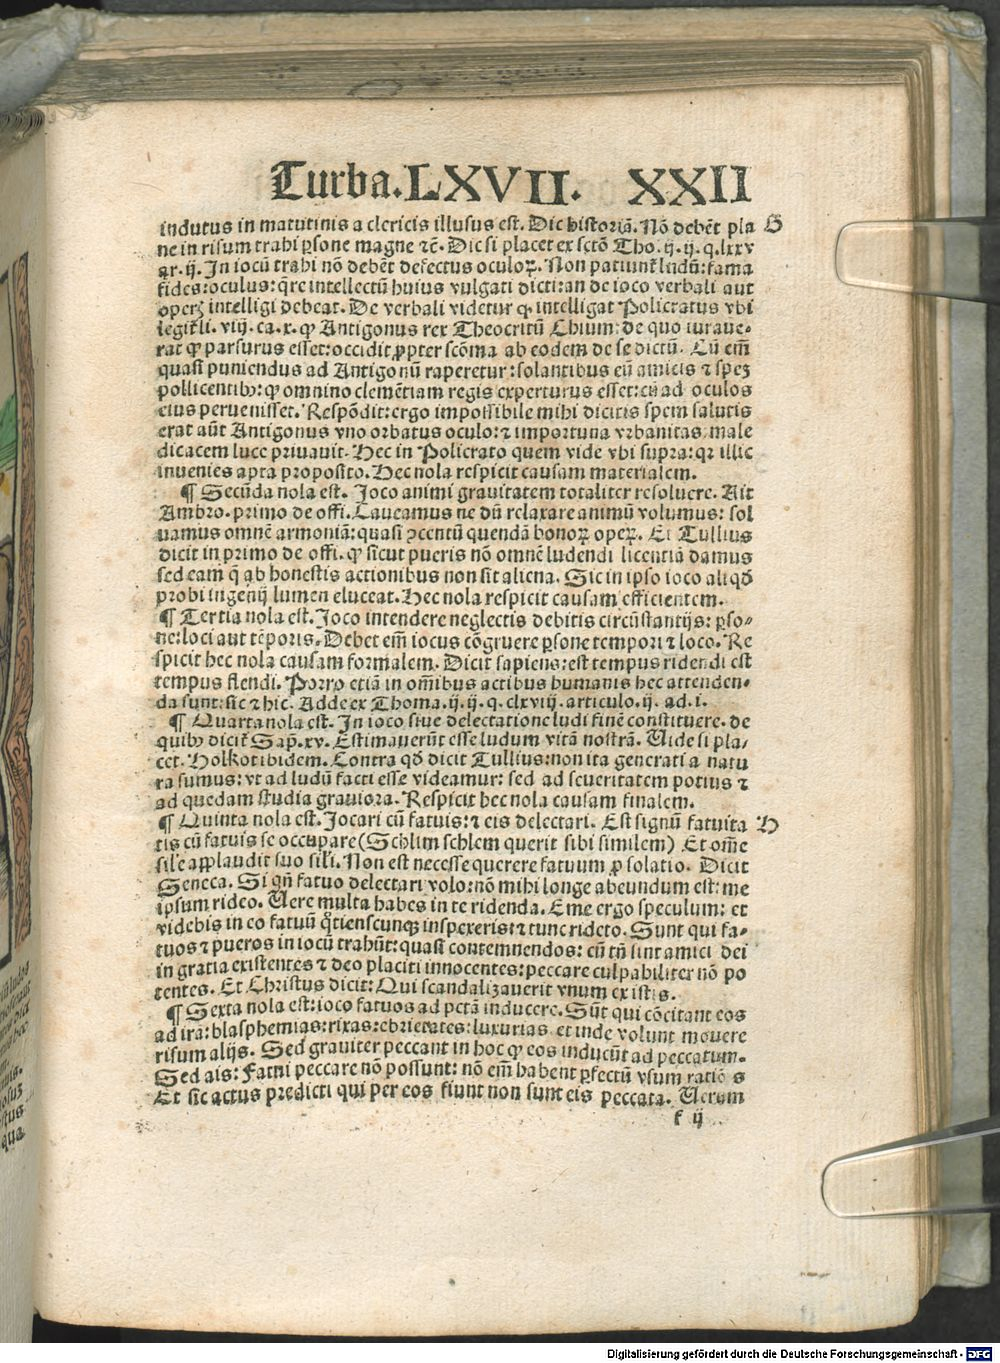 Turba.LXVII. XXII
indutus in matutinis a clericis illusus est. Dic historiā. Nō debēt pla G
ne in risum trahi ꝑsone magne ⁊c̄. Dic si placet ex sctō Tho. ij. ij. q. lxxv
ar. ij. In iocū trahi nō debēt defectus oculoꝝ. Non patiunt̄ ludū: fama
fides: oculus: qre intellectū huius vulgati dicti: an de ioco verbali aut
operꝫ intelligi debeat. De verbali videtur ꝙ intelligat Policratus vbi
legit̄ li. viij. ca. x. ꝙ Antigonus rex Theocritū Chium: de quo iuraue-
rat ꝙ parsurus esset: occidit ꝓpter scōma ab eodem de se dictū. Cū em̄
quasi puniendus ad Antigonū raperetur: solantibus eū amicis ⁊ speꝫ
pollicentibꝰ: ꝙ omnino clemētiam regis experturus esset: cū ad oculos
eius peruenisset. Respōdit: ergo impossibile mihi dicitis spem salutis
erat aūt Antigonus vno orbatus oculo: ⁊ importuna vrbanitas male
dicacem luce priuauit. Hec in Policrato quem vide vbi supra: qꝛ illic
inuenies apta proposito. Hec nola respicit causam materialem.
¶ Secūda nola est. Ioco animi grauitatem totaliter resoluere. Ait
Ambro. primo de offi. Caueamus ne dū relaxare animū volumus: sol
uamus omnē armoniā: quasi ꝯcentū quendā bonoꝝ opeꝝ. Et Tullius
dicit in primo de offi. ꝙ sicut pueris nō omnē ludendi licentiā damus
sed eam q̄ ab honestis actionibus non sit aliena. Sic in ipso ioco aliqd̄
probi ingenij lumen eluceat. Hec nola respicit causam efficientem.
¶ Tertia nola est. Ioco intendere neglectis debitis circūstantijs: ꝑso-
ne: loci aut tēporis. Debet em̄ iocus cōgruere ꝑsone tempori ⁊ loco. Re
spicit hec nola causam formalem. Dicit sapiens: est tempus ridendi est
tempus flendi. Porro etiā in om̄ibus actibus humanis hec attenden-
da sunt: sic ⁊ hic. Adde ex Thoma. ij. ij. q. clxviij. articulo. ij. ad. i.
¶ Quarta nola est. In ioco siue delectatione ludi finē constituere. de
quibꝰ dicit̄ Sap. xv. Estimauerūt esse ludum vitā nostrā. Uide si pla-
cet. Holkot ibidem. Contra qd̄ dicit Tullius: non ita generati a natu
ra sumus: vt ad ludū facti esse videamur: sed ad seueritatem potius ⁊
ad quedam studia grauiora. Respicit hec nola causam finalem.
¶ Quinta nola est. Iocari cū fatuis: ⁊ eis delectari. Est signū fatuita H
tis cū fatuis se occupare (Schlim schlem querit sibi similem) Et om̄e
sil'e applaudit suo sil'i. Non est necesse querere fatuum ꝓ solatio. Dicit
Seneca. Si qn̄ fatuo delectari volo: nō mihi longe abeundum est: me
ipsum rideo. Uere multa habes in te ridenda. Eme ergo speculum: et
videbis in eo fatuū qͦtienscunqꝫ inspexeris: ⁊ tunc rideto. Sunt qui fa-
tuos ⁊ pueros in iocū trahūt: quasi contemnendos: cū tn̄ sint amici dei
in gratia existentes ⁊ deo placiti innocentes: peccare culpabiliter nō po
tentes. Et Christus dicit: Qui scandalizauerit vnum ex istis.
¶ Sexta nola est: ioco fatuos ad pctā inducere. Sūt qui cōcitant eos
ad ira: blasphemias: rixas: ebrietates: luxurias et inde volunt mouere
risum alijs. Sed grauiter peccant in hoc ꝙ eos inducūt ad peccatum.
Sed ais: Fatui peccare nō possunt: nō em̄ habent ꝑfectū vsum ratiōis
Et sic actus predicti qui per eos fiunt non sunt eis peccata. Uerum
f ij
Digitalisierung gefördert durch die Deutsche Forschungsgemeinschaft - DFG